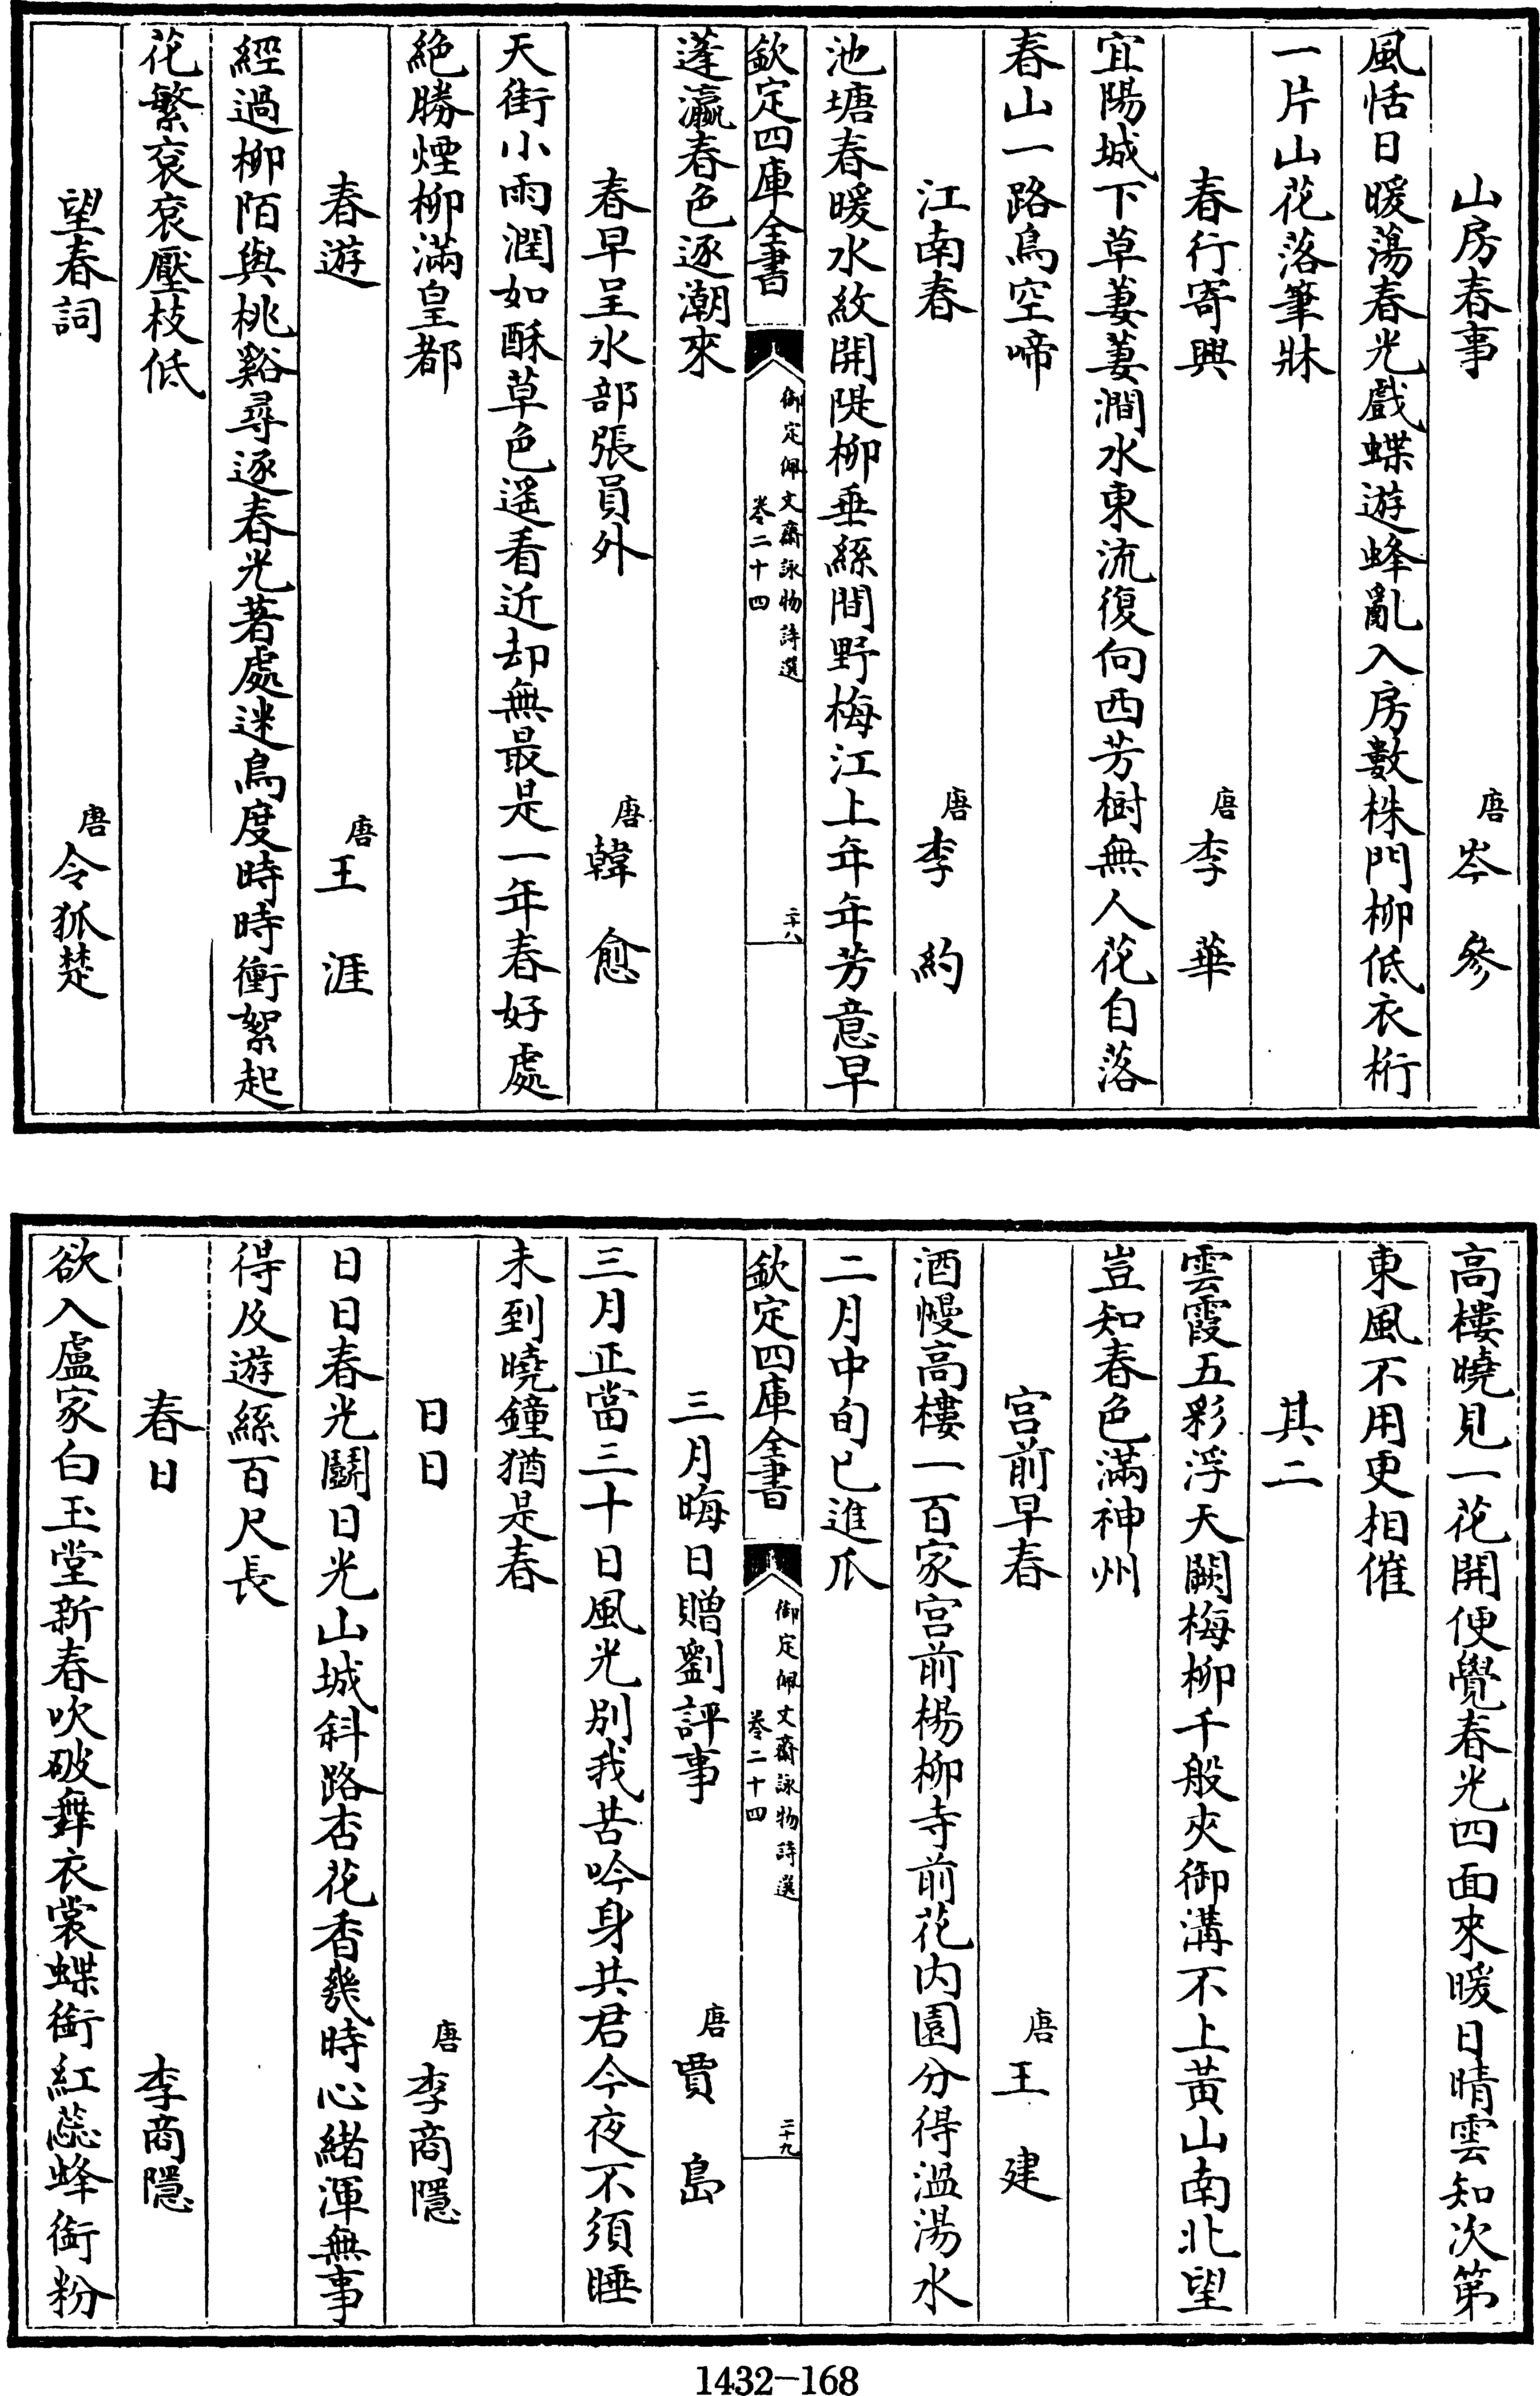 山房春事　唐岑參
風恬日暖蕩春光戲蝶遊蜂亂入房數株門柳低衣桁
一片山花落筆牀
春行寄興　唐李華
宜陽城下草萋萋澗水東流復向西芳樹無人花自落
春山一路鳥空啼
江南春　唐李約
池塘春暖水紋開隄柳垂絲間野梅江上年年芳意早
欽定四庫全書　御定佩文齋詠物詩選　卷二十四　二十八
蓬瀛春色逐潮來
春早呈水部張員外　唐韓愈
天街小雨潤如酥草色遥看近却無最是一年春好處
絶勝煙柳滿皇都
春遊　唐王涯
經過柳陌與桃谿尋逐春光著處迷鳥度時時衝絮起
花繁衮衮壓枝低
望春詞　唐令狐楚
高樓曉見一花開便覺春光四面來暖日晴雲知次第
東風不用更相催
其二
雲霞五彩浮天闕梅柳千般夾御溝不上黃山南北望
豈知春色滿神州
宫前早春　唐王建
酒幔高樓一百家宫前楊柳寺前花内園分得温湯水
二月中旬已進瓜
欽定四庫全書　御定佩文齋詠物詩選　卷二十四　二十九
三月晦日贈劉評事　唐賈島
三月正當三十日風光別我苦吟身共君今夜不須睡
未到曉鐘猶是春
日日　唐李商隱
日日春光鬬日光山城斜路杏花香幾時心緒渾無事
得及遊絲百尺長
春日　李商隱
欲入盧家白玉堂新春吹破舞衣裳蝶銜紅蕊蜂銜粉
1432-168